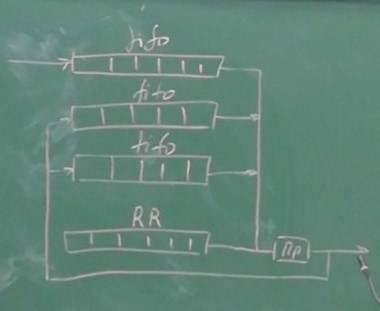 fifo
fifo
fifo
RR
ПР